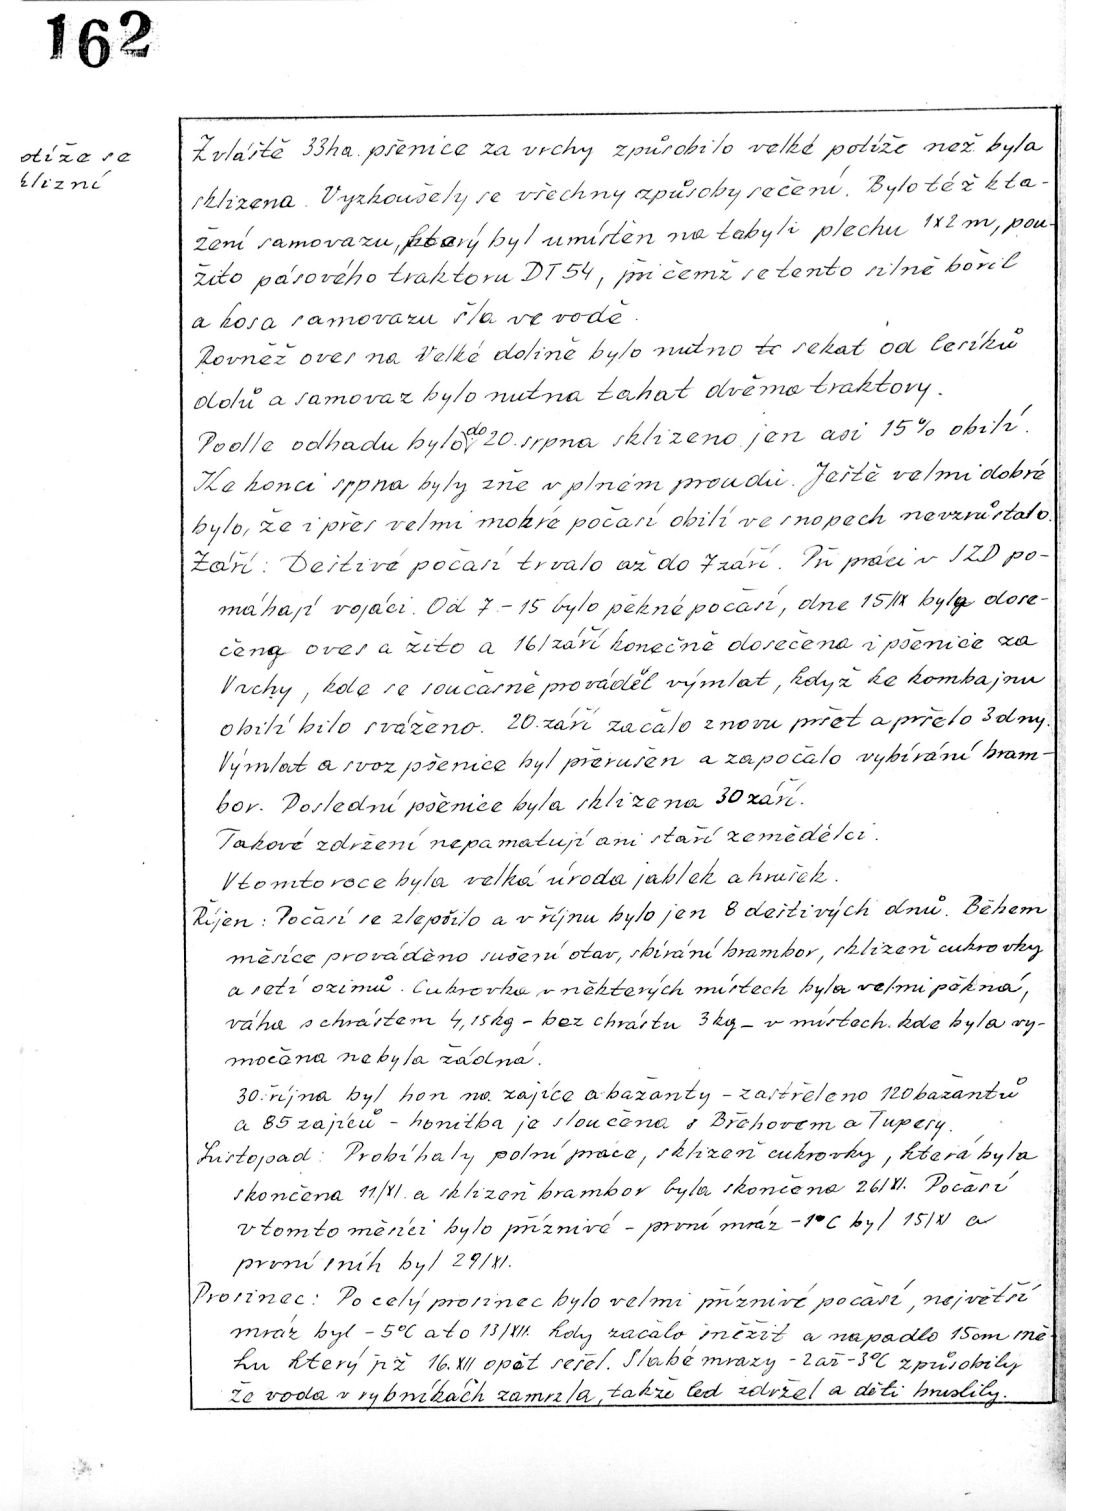 162
otíže se
klizní
Zvláště 33ha. pšenice za vrchy způsobilo velké potíže než byla
sklizena. Vyzkoušely se všechny způsoby sečení. Bylo též kta-
žení samovazu, který byl umístěn na tabyli plechu 1x2 m, pou-
žito pásového traktoru DT 54, při čemž se tento silně bořil
a kosa samovazu šla ve vodě.
Rovněž oves na Velké dolině bylo nutno sekat od lesíků
dolů a samovaz bylo nutna tahat dvěma traktory.
Podle odhadu bylo do 20. srpna sklizeno jen asi 15% obilí.
Ke konci srpna byly žně v plném proudu. Ještě velmi dobré
bylo, že i přes velmi mokré počasí obilí ve snopech nevzrůstalo.
Září: Deštivé počasí trvalo až do 7 září. Při práci v JZD po-
máhají vojáci. Od 7.-15 bylo pěkné počasí, dne 15/IX byla dose-
čena oves a žito a 16/září konečně dosečena i pšenice za
Vrchy, kde se současně prováděl výmlat, když ke kombajnu
obilí bilo sváženo. 20. září začalo znovu pršet a pršelo 3 dny.
Výmlat a svoz pšenice byl přerušen a započalo vybírání bram-
bor. Poslední pšenice byla sklizena 30 září.
Takové zdržení nepamatují ani staří zemědělci.
V tomto roce byla velká úroda jablek a hrušek.
Říjen: Počasí se zlepšilo a v říjnu bylo jen 8 deštivých dnů. Během
měsíce prováděno sušení otav, sbírání brambor, sklizeň cukrovky
a setí ozimů. Cukrovka v některých místech byla velmi pěkná,
váha s chrástem 4,15kg - bez chrástu 3kg - v místech. kde byla vy-
močena nebyla žádná.
30. října byl hon na zajíce a bažanty - zastřeleno 120 bažantů
a 85 zajíců - honitba je sloučena s Břehovem a Tupesy.
Listopad: Probíhaly polní práce, sklizeň cukrovky, která byla
skončena 11/XI. a sklizeň brambor byla skončena 26/XI. Počasí
v tomto měsíci bylo příznivé - první mráz -1°C byl 15/XI a
první sníh byl 29/XI.
Prosinec: Po celý prosinec bylo velmi příznivé počasí, největší
mráz byl -5°C a to 13/XII. kdy začalo sněžit a napadlo 15cm sně-
hu který již 16.XII opět sešel. Slabé mrazy -2 až -3°C způsobily
že voda v rybníkách zamrzla, takže led zdržel a děti bruslily.